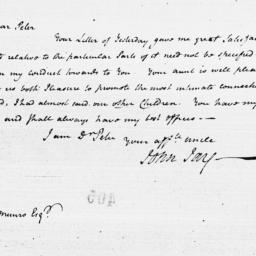 ar Peter
Your Letter of Yesterday, gave me great Satisfac
t relative to the particular Parts of it need not be specified
n my conduct towards to You Your aunt is well please
us both Pleasure to promote the most intimate connect
d, I had almost said our other Children. You have my
and shall always have my best offices —
I am Dr Peter
Your affte uncle
John Jay
munro Esqr.
405